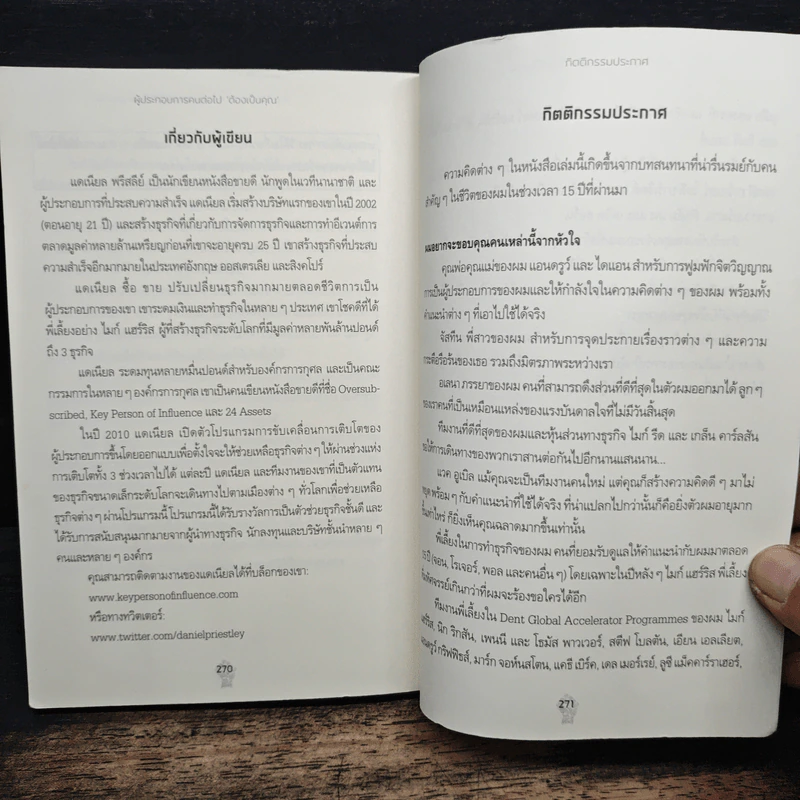 ผู้ประกอบการคนต่อไป 'ต้องเป็นคุณ'
เกี่ยวกับผู้เขียน
แดเนียล พรีสลีย์ เป็นนักเขียนหนังสือขายดี นักพูดในเวทีนานาชาติ และ
ผู้ประกอบการที่ประสบความสำเร็จ แดเนียล เริ่มสร้างบริษัทแรกของเขาในปี 2002
(ตอนอายุ 21 ปี) และสร้างธุรกิจที่เกี่ยวกับการจัดการธุรกิจและการทำอีเวนต์การ
ตลาดมูลค่าหลายล้านเหรียญก่อนที่เขาจะอายุครบ 25 ปี เขาสร้างธุรกิจที่ประสบ
ความสำเร็จอีกมากมายในประเทศอังกฤษ ออสเตรเลีย และสิงคโปร์
แดเนียล ซื้อ ขาย ปรับเปลี่ยนธุรกิจมากมายตลอดชีวิตการเป็น
ผู้ประกอบการของเขา เขาระดมเงินและทำธุรกิจในหลาย ๆ ประเทศ เขาโชคดีที่ได้
พี่เลี้ยงอย่าง ไมก์ แฮร์ริส ผู้ที่สร้างธุรกิจระดับโลกที่มีมูลค่าหลายพันล้านปอนด์
ถึง 3 ธุรกิจ
แดเนียล ระดมทุนหลายหมื่นปอนด์สำหรับองค์กรการกุศล และเป็นคณะ
กรรมการในหลาย ๆ องค์กรการกุศล เขาเป็นคนเขียนหนังสือขายดีที่ชื่อ Oversub-
scribed, Key Person of Influence และ 24 Assets
ในปี 2010 แดเนียล เปิดตัวโปรแกรมการขับเคลื่อนการเติบโตของ
ผู้ประกอบการขึ้นโดยออกแบบเพื่อตั้งใจจะให้ช่วยเหลือธุรกิจต่าง ๆ ให้ผ่านช่วงแห่ง
การเติบโตทั้ง 3 ช่วงเวลาไปได้ แต่ละปี แดเนียล และทีมงานของเขาที่เป็นตัวแทน
ของธุรกิจขนาดเล็กระดับโลกจะเดินทางไปตามเมืองต่าง ๆ ทั่วโลกเพื่อช่วยเหลือ
ธุรกิจต่าง ๆ ผ่านโปรแกรมนี้ โปรแกรมนี้ได้รับรางวัลการเป็นตัวช่วยธุรกิจชั้นดี และ
ได้รับการสนับสนุนมากมายจากผู้นำทางธุรกิจ นักลงทุนและบริษัทชั้นนำหลาย ๆ
คนและหลาย ๆ องค์กร
คุณสามารถติดตามงานของแดเนียลได้ที่บล็อกของเขา:
www.keypersonofinfluence.com
หรือทางทวิตเตอร์:
www.twitter.com/danielpriestley
270
กิตติกรรมประกาศ
กิตติกรรมประกาศ
ความคิดต่าง ๆ ในหนังสือเล่มนี้เกิดขึ้นจากบทสนทนาที่น่ารื่นรมย์กับคน
สำคัญ ๆ ในชีวิตของผมในช่วงเวลา 15 ปีที่ผ่านมา
ผมอยากจะขอบคุณคนเหล่านี้จากหัวใจ
คุณพ่อคุณแม่ของผม แอนดรูว์ และ ไดแอน สำหรับการฟูมฟักจิตวิญญาณ
การเป็นผู้ประกอบการของผมและให้กำลังใจในความคิดต่าง ๆ ของผม พร้อมทั้ง
คำแนะนำต่าง ๆ ที่เอาไปใช้ได้จริง
จัสทีน พี่สาวของผม สำหรับการจุดประกายเรื่องราวต่าง ๆ และความ
กระตือรือร้นของเธอ รวมถึงมิตรภาพระหว่างเรา
อเลนา ภรรยาของผม คนที่สามารถดึงส่วนที่ดีที่สุดในตัวผมออกมาได้ ลูก ๆ
ของเราคนที่เป็นเหมือนแหล่งของแรงบันดาลใจที่ไม่มีวันสิ้นสุด
ทีมงานที่ดีที่สุดของผมและหุ้นส่วนทางธุรกิจ ไมก์ รีด และ เกล็น คาร์ลสัน
ขอให้การเดินทางของพวกเราสานต่อกันไปอีกนานแสนนาน...
แวค อูเบิล แม้คุณจะเป็นทีมงานคนใหม่ แต่คุณก็สร้างความคิดดี ๆ มาไม่
หยุด พร้อม ๆ กับคำแนะนำที่ใช้ได้จริง ที่น่าแปลกไปกว่านั้นก็คือยิ่งตัวผมอายุมาก
ขึ้นเท่าไหร่ ก็ยิ่งเห็นคุณฉลาดมากขึ้นเท่านั้น
พี่เลี้ยงในการทำธุรกิจของผม คนที่ยอมรับดูแลให้คำแนะนำกับผมมาตลอด
15 ปี (จอน, โรเจอร์, พอล และคนอื่น ๆ) โดยเฉพาะในปีหลัง ๆ ไมก์ แฮร์ริส พี่เลี้ยง
อัจฉริยะเกินกว่าที่ผมจะร้องขอใครได้อีก
ทีมงานพี่เลี้ยงใน Dent Global Accelerator Programmes ของผม ไมก์
แฮร์ริส, นิก ริกสัน, เพนนี และ โธมัส พาวเวอร์, สตีฟ โบลตัน, เอียน เอลเลียต,
แอนดรูว์ กริฟฟิธส์, มาร์ก จอห์นสโตน, แคธี เบิร์ค, เดล เมอร์เรย์, ลูซี แม็คคาร์ราเฮอร์,
271